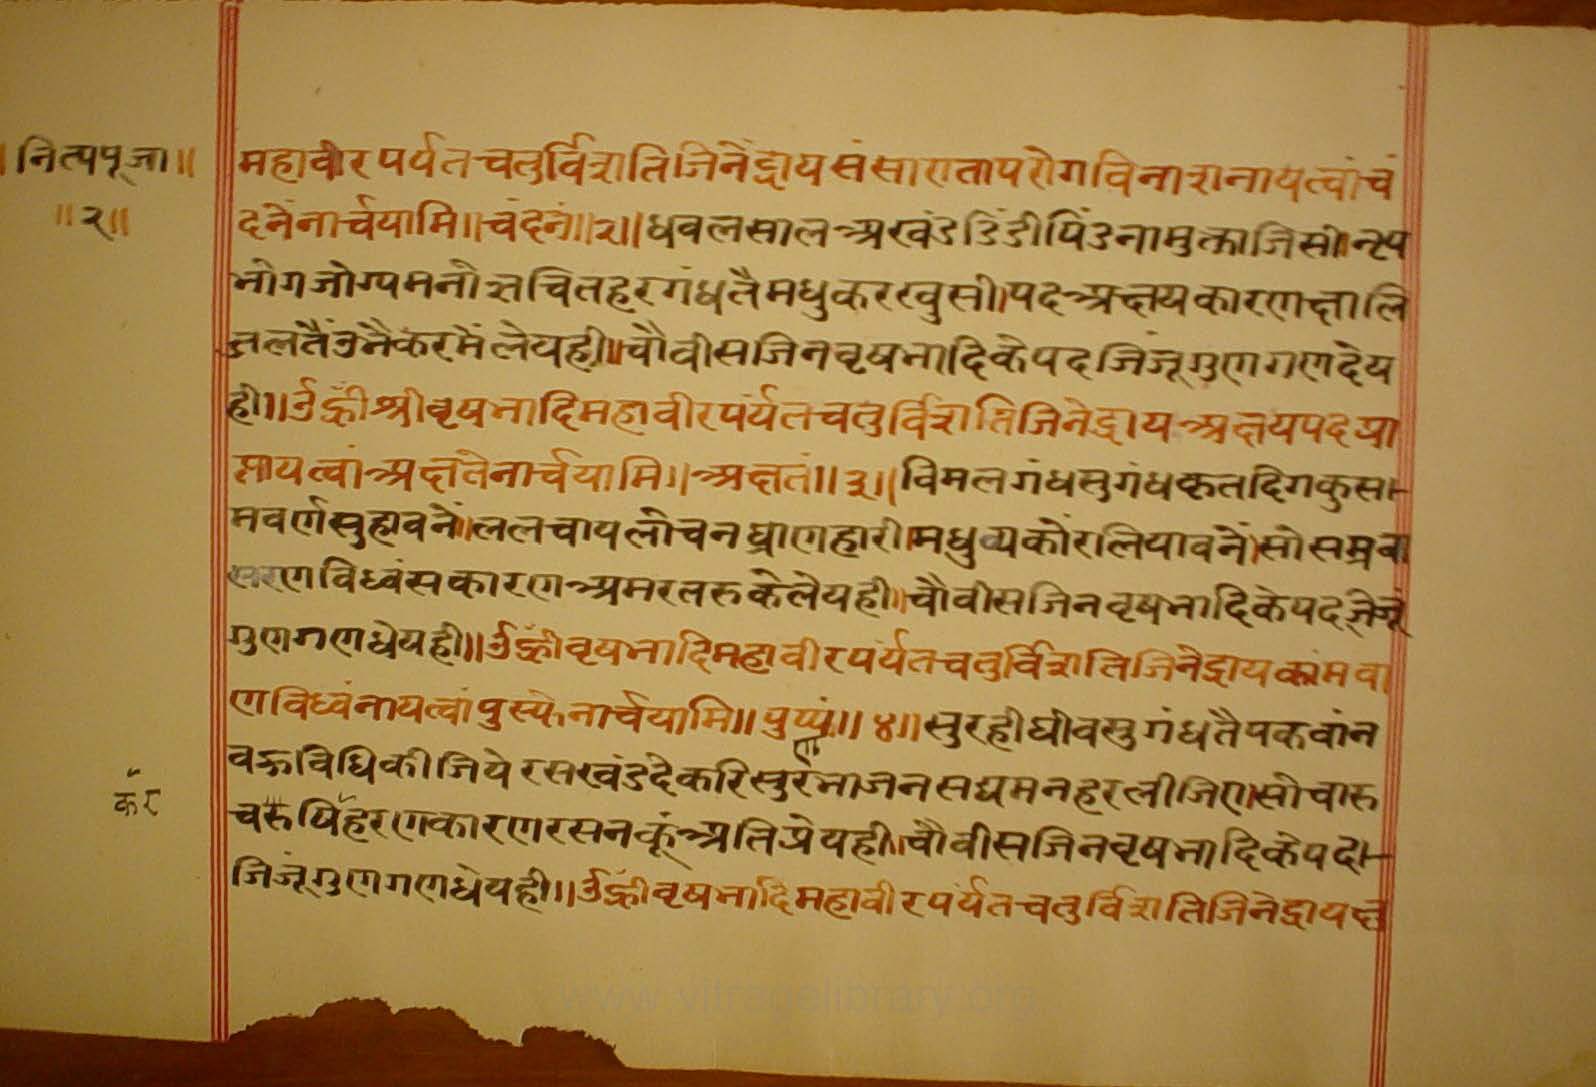 ॥नित्यपूजा॥
॥२॥
महावीरपर्यंतचतुर्विंशतिजिनेंद्रायसंसारातापरोगविनाशनायत्वांचं
दनेंनार्चयामि॥चंदनं॥२॥धवलसालअखंडडिंडीपिंडनामुक्ताजिसी॥नृप
भोगजोग्यमनोज्ञचितहरगंधतैमधुकरखुसी।पदअक्षयकारणक्षालि
जलतैंउनैकरमेंलेयही॥चौवीसजिनवृषभादिकेपदजिंजूंगुणगणदेय
ही॥ॐह्रींश्रीवृषभादिमहावीरपर्यंतचतुर्विंशतिजिनेंद्रायअक्षयपदप्रा
प्तायत्वांअक्षतेनार्चयामि॥अक्षतं॥३॥विमलगंधसुगंधकृतदिगकुसा-
मवर्णसुहावनें।ललचायलोचनघ्राणहारी।मधुव्यकोंरलियावनें।सोसमरवा
सरणविध्वंसकारणअमरतरुकेलेयही॥चौवीसजिनवृषभादिकेपदजेजूं
गुणगणधेयही॥ॐह्रींवृषभादिमहावीरपर्यंतचतुर्विंशतिजिनेंद्रायकांमवा
णविध्वंनायत्वांपुस्येनार्चयामि॥पुष्पं॥४॥सुरहीघीवसुगंधतैपकवांन
वक्रविधिकीजियेरसखंडदेकरिसुरभाजनसद्यमनहरलीजिए।सोचारु
ण
चरुपिंहरणकारणरसनकूंअतिप्रेयही॥चौवीसजिनवृषभादिकेपदा-
कर
जिंजूंगुणगणधेयही॥ॐह्रींवृषभादिमहावीरपर्यंतचतुर्विंशतिजिनेंद्रायक्षु
www.vitragelibrary.org